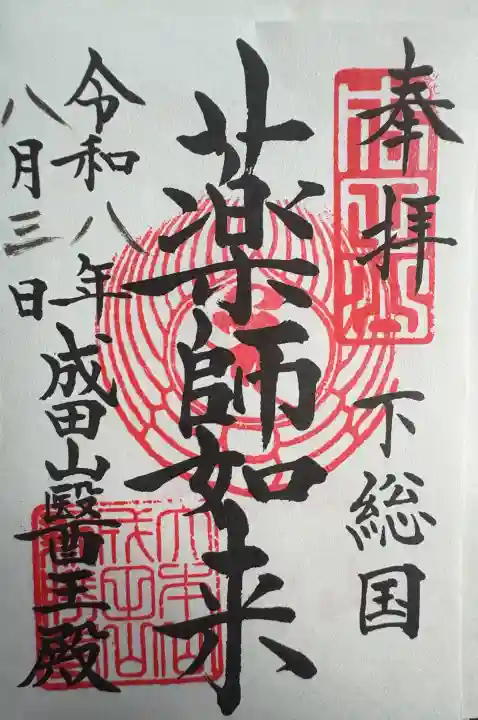 奉拝
下総国
薬師如来
令和八年
八月三日
成田山醫王殿